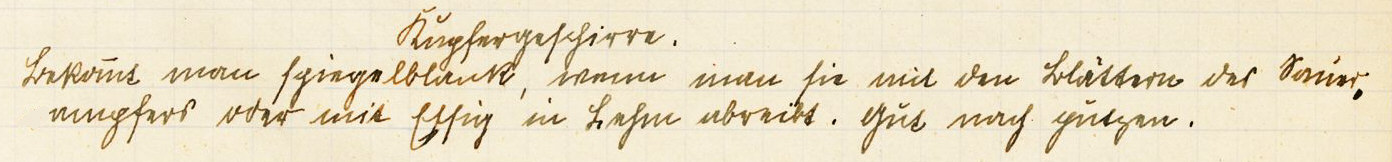 Kupfergeschirre.
Bekom̅t man spiegelblank, wenn man sie mit den Blättern des Sauer,
ampfers oder mit Essig in Lehm abreibt. Gut nach putzen.